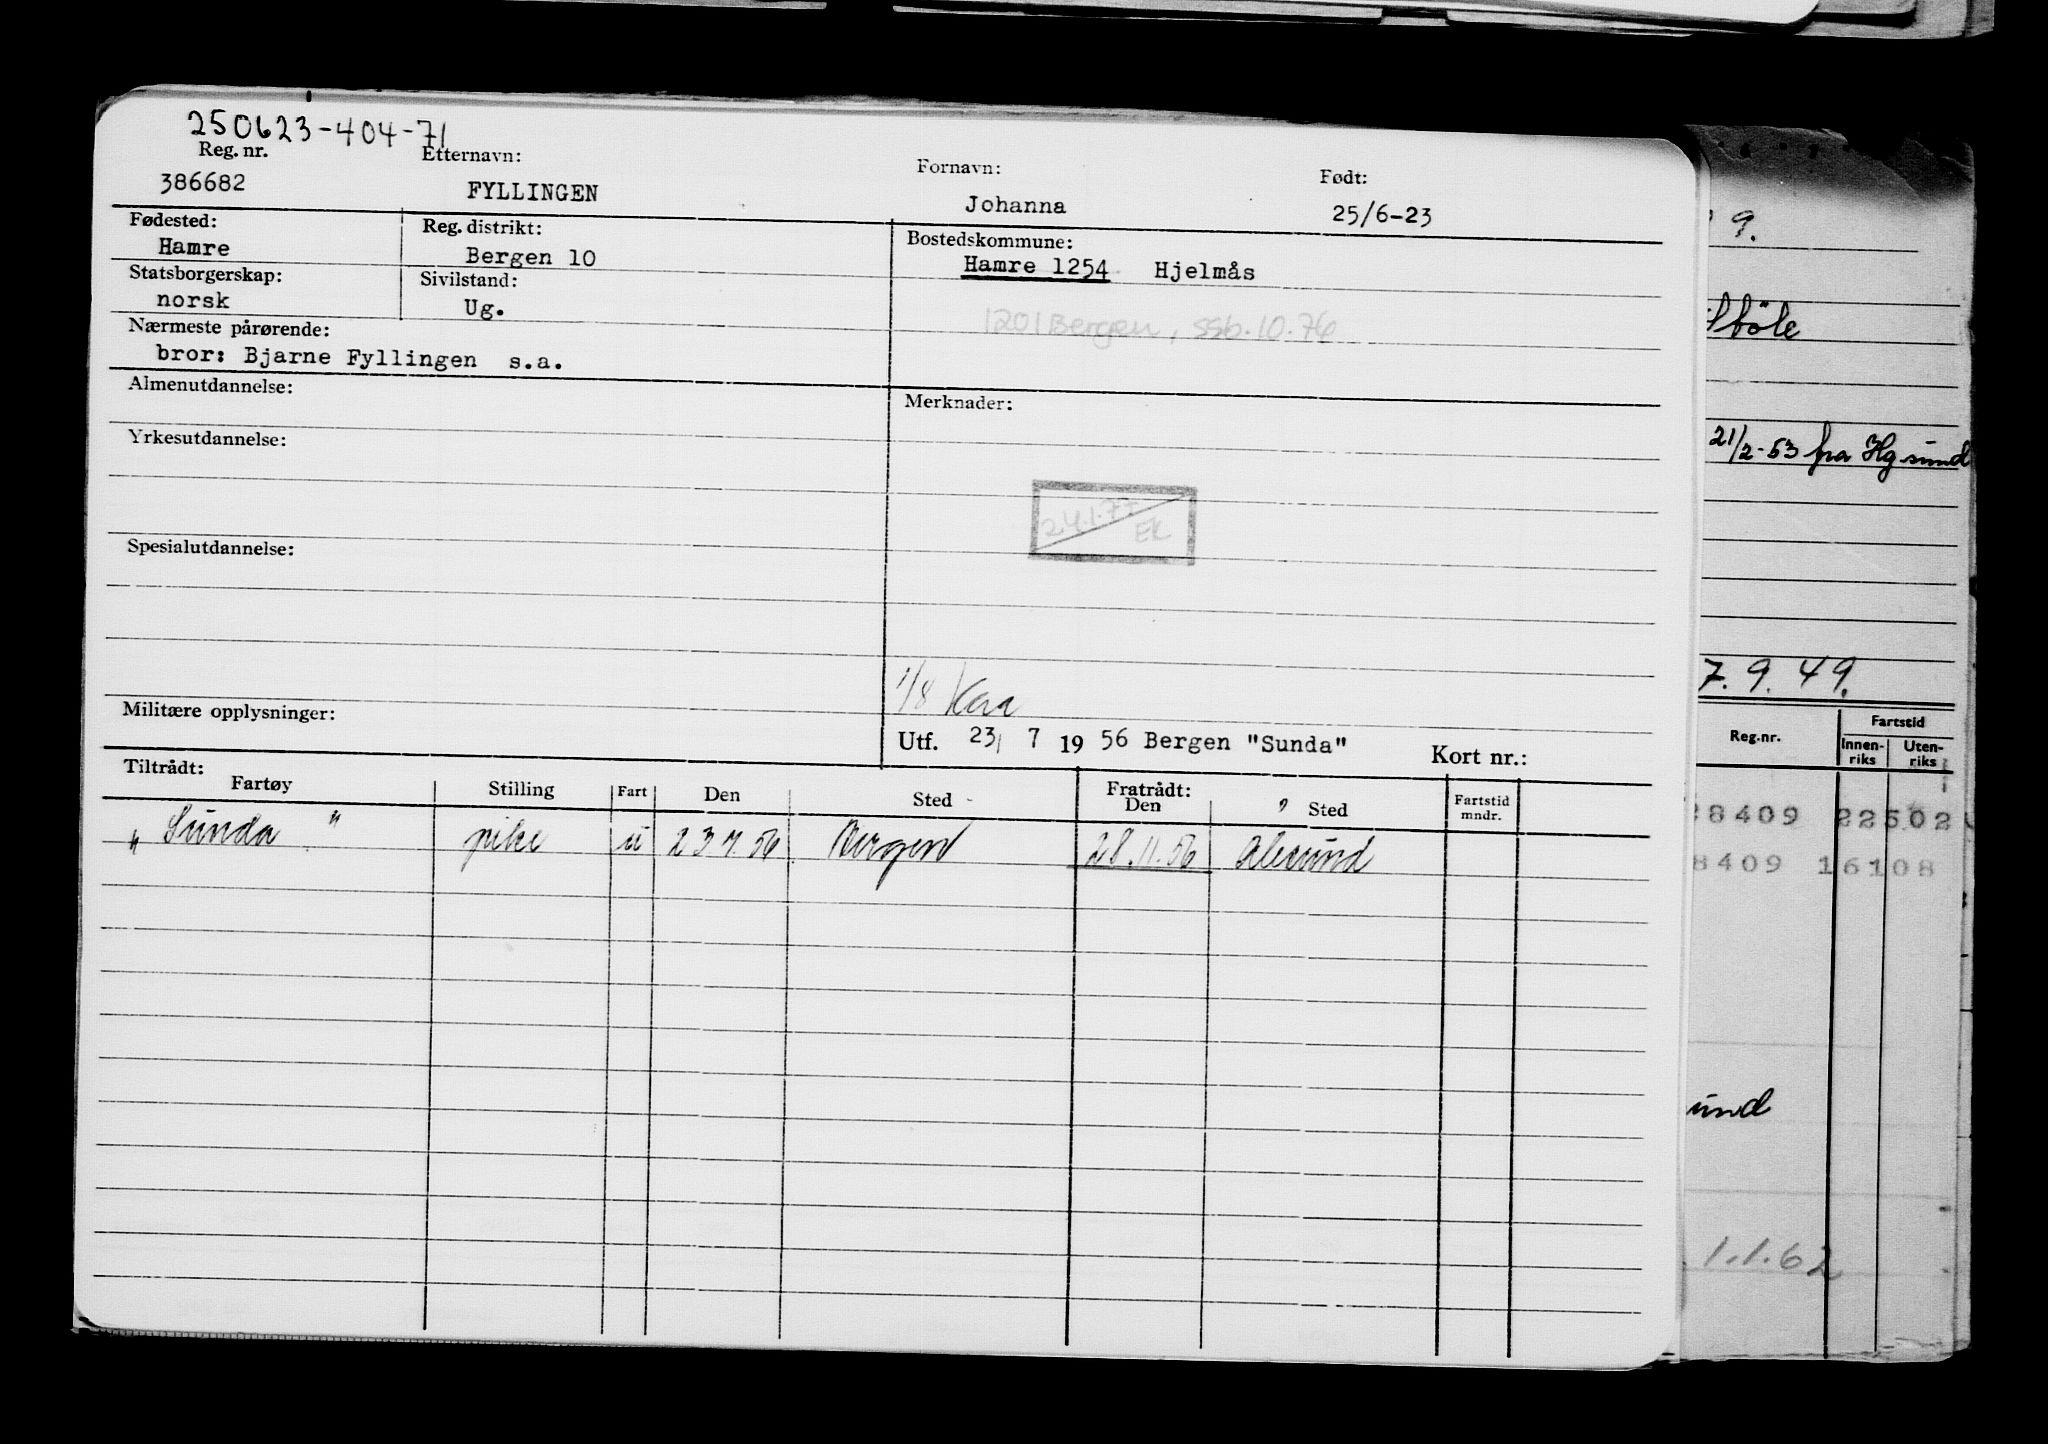 250623-404-71
Reg. nr. Etternavn: Fornavn: Født:
386682 FYLLINGEN Johanna 25/6-23
Fødested: Reg. distrikt: Bostedskommune:
Hamre Bergen 10 Hamre 1254 Hjelmås
Statsborgerskap: Sivilstand:
norsk Ug.
1201 Bergen, ssb. 10.76
Nærmeste pårørende:
bror: Bjarne Fyllingen s.a.
Almenutdannelse: Merknader:
Yrkesutdannelse:
24.1.77 EK
Spesialutdannelse:
1/8
Militære opplysninger:
Utf. 23/ 7 19 56 Bergen "Sunda" Kort nr.:
Tiltrådt: Fratrådt:
Fartøy Stilling Fart Den Sted Den Sted Fartstid mndr.
„ Sunda " pike u 23 7. 56 Bergen 28.11.56 Alesund
9.
Støle
21/2-53 fra Hgsund
7. 9. 49.
Reg.nr. Fartstid
Innen-riks Uten-riks
8409 22502
8409 16108
und
1.1.62